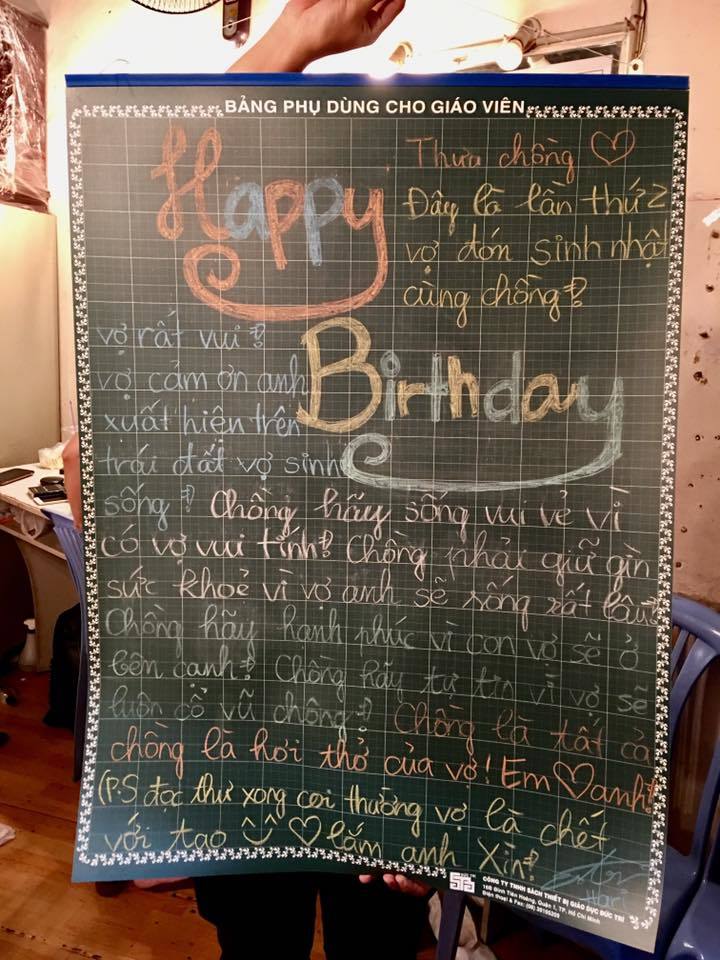 BẢNG PHỤ DÙNG CHO GIÁO VIÊN
Happy
Birthday
Thưa chồng ♡
Đây là lần thứ 2
vợ đón sinh nhật
cùng chồng!
vợ rất vui!
vợ cảm ơn anh
xuất hiện trên
trái đất vợ sinh
sống! Chồng hãy sống vui vẻ vì
có vợ vui tính! Chồng phải giữ gìn
sức khoẻ vì vợ anh sẽ sống rất lâu!
Chồng hãy hạnh phúc vì con vợ sẽ ở
bên cạnh! Chồng hãy tự tin vì vợ sẽ
luôn cổ vũ chồng! Chồng là tất cả
chồng là hơi thở của vợ! Em ♡ anh!
(P.S đọc thư xong coi thường vợ là chết
với tao ♡ lắm anh Xìn!
Hari
CÔNG TY TNHH SÁCH THIẾT BỊ GIÁO DỤC ĐỨC TRÍ
16B Đinh Tiên Hoàng, Quận 1, TP. Hồ Chí Minh